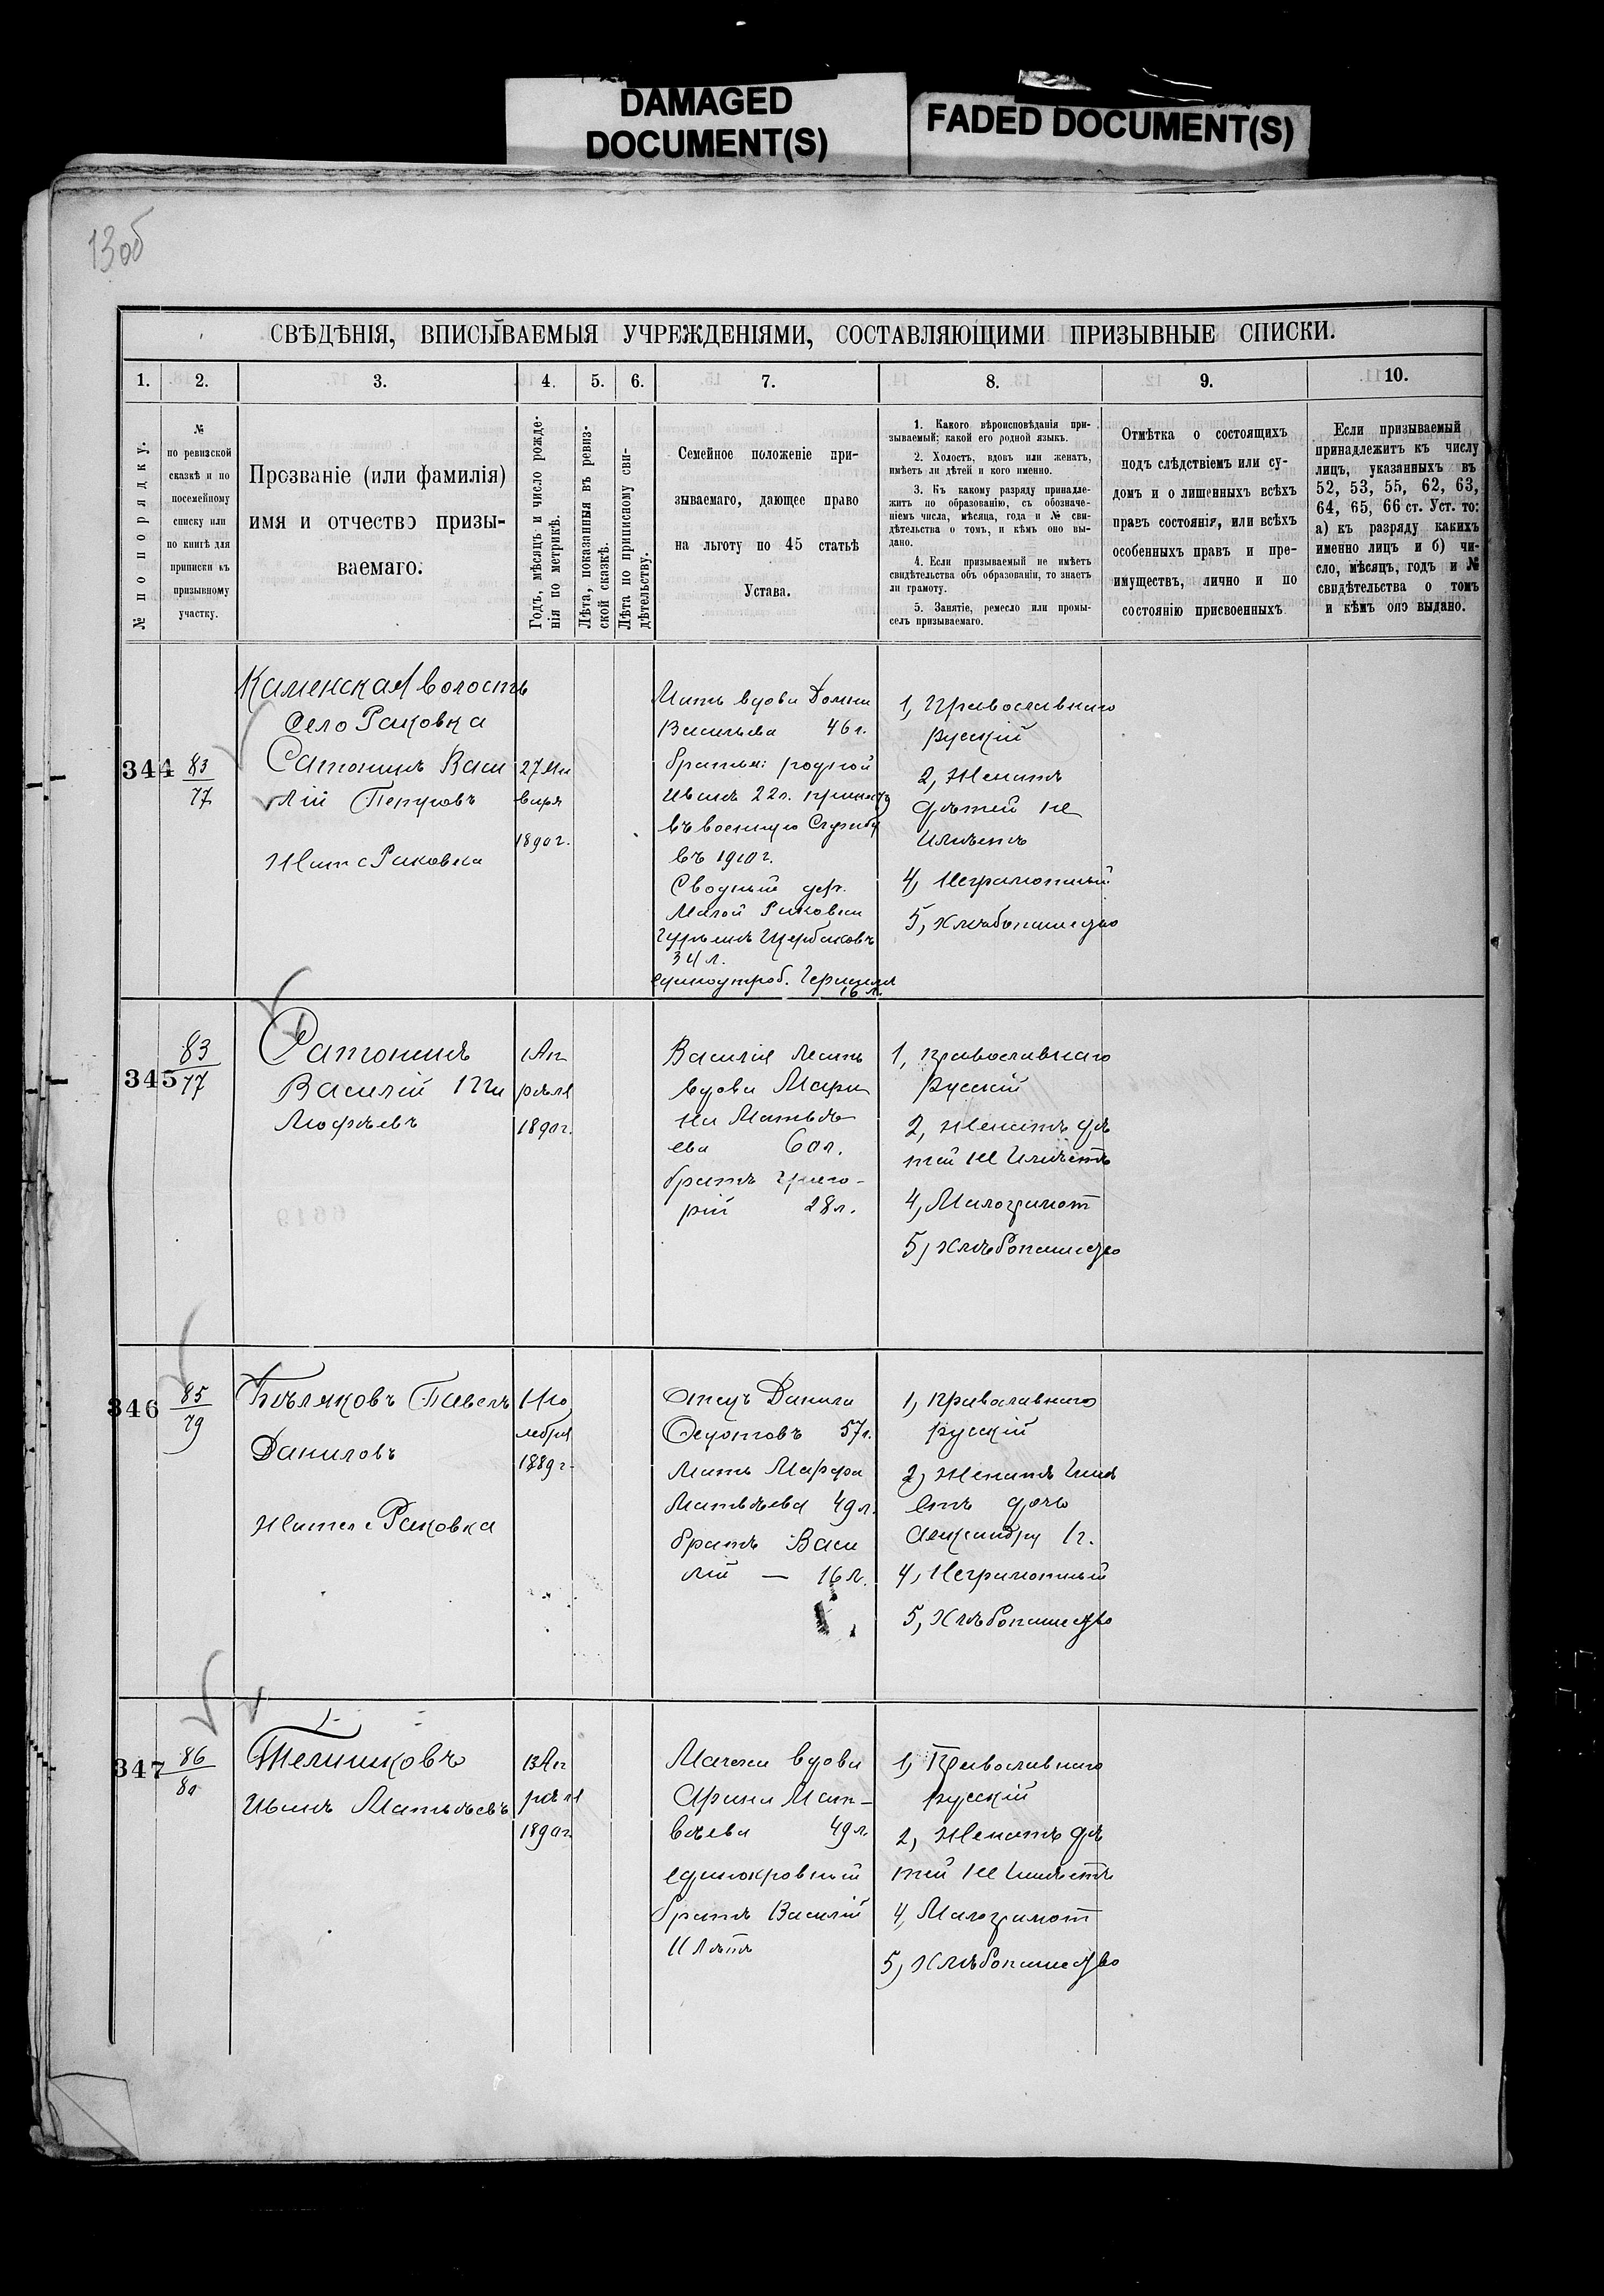 DAMAGED
DOCUMENT(S)
FADED DOCUMENT(S)
13об
СВѢДѢНІЯ, ВПИСЫВАЕМЫЯ УЧРЕЖДЕНІЯМИ, СОСТАВЛЯЮЩИМИ ПРИЗЫВНЫЕ СПИСКИ.
1. 2. 3. 4. 5. 6. 7. 8. 9. 10.
№ по порядку.
№
по ревизской
сказкѣ и по
посемейному
списку или
по книгѣ для
приписки къ
призывному
участку.
Прозваніе (или фамилія)
имя и отчество призы-
ваемаго.
Годъ, мѣсяцъ и число рожде-
нія по метрикѣ.
Лѣта, показанныя въ ревиз-
ской сказкѣ.
Лѣта по приписному сви-
дѣтельству.
Семейное положеніе при-
зываемаго, дающее право
на льготу по 45 статьѣ
Устава.
1. Какого вѣроисповѣданія при-
зываемый; какой его родной языкъ.
2. Холостъ, вдовъ или женатъ,
имѣетъ ли дѣтей и кого именно.
3. Къ какому разряду принадле-
житъ по образованію, съ обозначе-
ніемъ числа, мѣсяца, года и № сви-
дѣтельства о томъ, и кѣмъ оно вы-
дано.
4. Если призываемый не имѣетъ
свидѣтельства объ образованіи, то знаетъ
ли грамоту.
5. Занятіе, ремесло или промы-
селъ призываемаго.
Отмѣтка о состоящихъ
подъ слѣдствіемъ или су-
домъ и о лишенныхъ всѣхъ
правъ состоянія, или всѣхъ
особенныхъ правъ и пре-
имуществъ, лично и по
состоянію присвоенныхъ
Если призываемый
принадлежитъ къ числу
лицъ, указанныхъ въ
52, 53, 55, 62, 63,
64, 65, 66 ст. Уст. то:
а) къ разряду какихъ
именно лицъ и б) чи-
сло, мѣсяцъ, годъ и №
свидѣтельства о томъ
и кѣмъ оно выдано.
344
83
77
Каменская волость
Село Раковка
Сатонинъ Васи
лій Петровъ
Жит с Раковка
27 Ян
варя
1890 г.
Мать вдова Домна
Васильева 46 л.
братья: родной
Иванъ 22 л. принятъ
въ военную службу
въ 1910 г.
Сводный дер.
Малой Раковки
Щербаковъ
34 л.
единоутроб.
16 л.
1, Православнаго
русскій
2, Женатъ
дѣтей не
имѣетъ
4, Неграмотный
5, Хлѣбопашество
345
83
77
Сатонинъ
Василій Ти
мофѣевъ
1 Ап
рѣля
1890 г.
Василія мать
вдова Мари
на Матвѣ
ева 60 л.
братъ Григо-
рій 28 л.
1, православнаго
русскій
2, женатъ дѣ
тей не имѣетъ
4, Малограмот
5, Хлѣбопашество
346
85
79
Бѣляковъ Павелъ
Даниловъ
Жител с Раковка
1 Но
ября
1889 г.
Отецъ Данила
57 л.
Мать Марфа
Матвѣева 49 л.
братъ Васи
лій — 16 л.
1, православнаго
русскій
2, Женатъ имѣ
етъ дочь
Александру 1 г.
4, Неграмотный
5, Хлѣбопашество
347
86
80
Телишковъ
Иванъ Матвѣевъ
13 Ап
рѣля
1890 г.
Мачеха вдова
Арина Мат-
вѣева 49 л.
единокровный
братъ Василій
11 лѣтъ
1, Православнаго
русскій
2, Женатъ дѣ
тей не имѣетъ
4, Малограмот
5, Хлѣбопашество